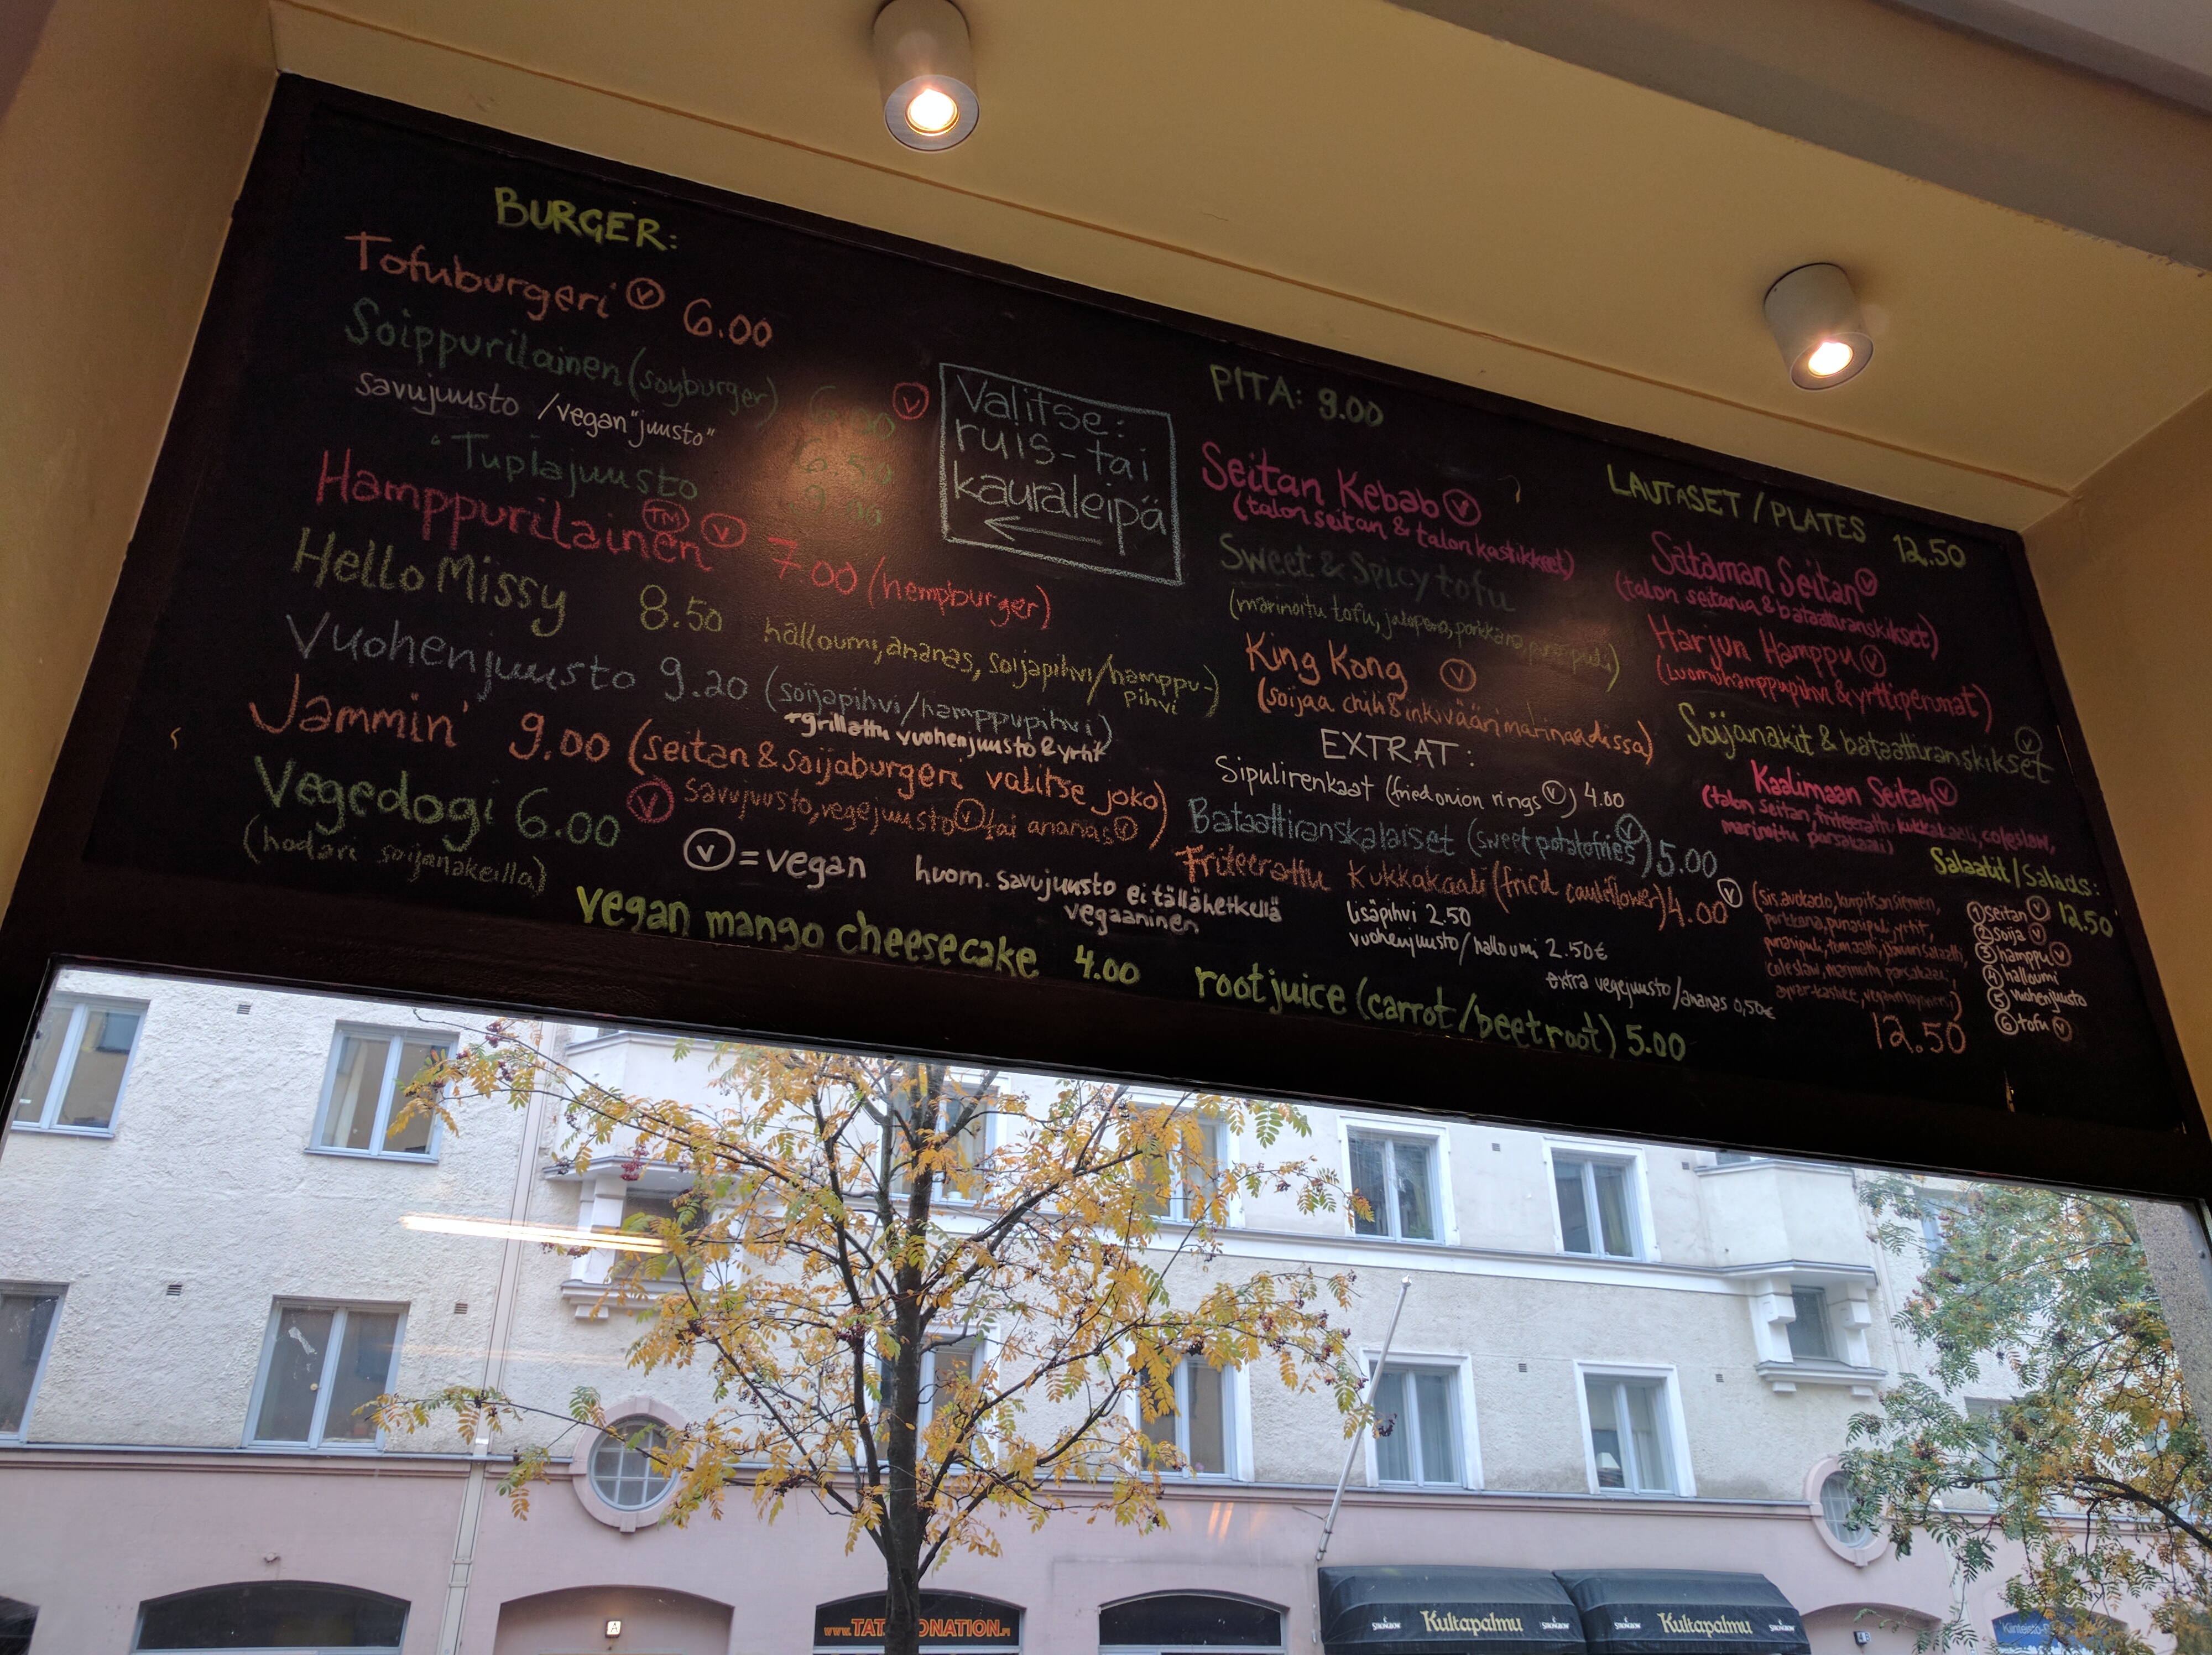 BURGER:
Tofuburgeri Ⓥ 6.00
Soippurilainen (soyburger) 6.00 Ⓥ
savujuusto / vegan "juusto" 6.50
" Tuplajuusto 9.00
Hamppurilainen ™ Ⓥ 7.00 (hempburger)
Hello Missy 8.50 halloumi, ananas, soijapihvi/hamppu-
pihvi
Vuohenjuusto 9.20 (soijapihvi/hamppupihvi)
+grillattu vuohenjuusto & yrtit
Jammin' 9.00 (seitan & soijaburgeri valitse joko)
savujuusto, vegejuusto Ⓥ tai ananas Ⓥ)
Vegedogi 6.00 Ⓥ
(hodari soijanakeilla)
Ⓥ = vegan
huom. savujuusto ei tällähetkellä
vegaaninen
vegan mango cheesecake 4.00
Valitse:
ruis- tai
kauraleipä
←
PITA: 9.00
Seitan Kebab Ⓥ
(talon seitan & talon kastikkeet)
Sweet & Spicy tofu
(marinoitu tofu, jalopeno, porkkana,
King Kong Ⓥ
(soijaa chili & inkivääri marinadissa)
EXTRAT:
Sipulirenkaat (fried onion rings Ⓥ) 4.00
Bataattiranskalaiset (sweet potatofries Ⓥ) 5.00
Friteerattu Kukkakaali (fried cauliflower) 4.00 Ⓥ
lisäpihvi 2.50
vuohenjuusto/halloumi 2.50€
extra vegejuusto/ananas 0,50€
root juice (carrot/beetroot) 5.00
LAUTASET / PLATES 12.50
Sataman Seitan Ⓥ
(talon seitania & bataattiranskikset)
Harjun Hamppu Ⓥ
(Luomuhamppupihvi & yrttiperunat)
Soijanakit & bataattiranskikset Ⓥ
Kaalimaan Seitan Ⓥ
(talon seitan, friteerattu kukkakaali, coleslaw,
marinoitu parsakaali)
Salaatit / Salads:
12.50
(Sis avokado, kurpitsansiemen,
porkkana, punasipuli, yrtit,
punasipuli, tomaatti, salaatti,
coleslaw, marinoitu parsakaali,
12.50
① seitan Ⓥ
② soija Ⓥ
③ hamppu Ⓥ
④ halloumi
⑤ vuohenjuusto
⑥ tofu Ⓥ
STRONGBOW Kultapalmu STRONGBOW
STRONGBOW Kultapalmu STRONGBOW
A